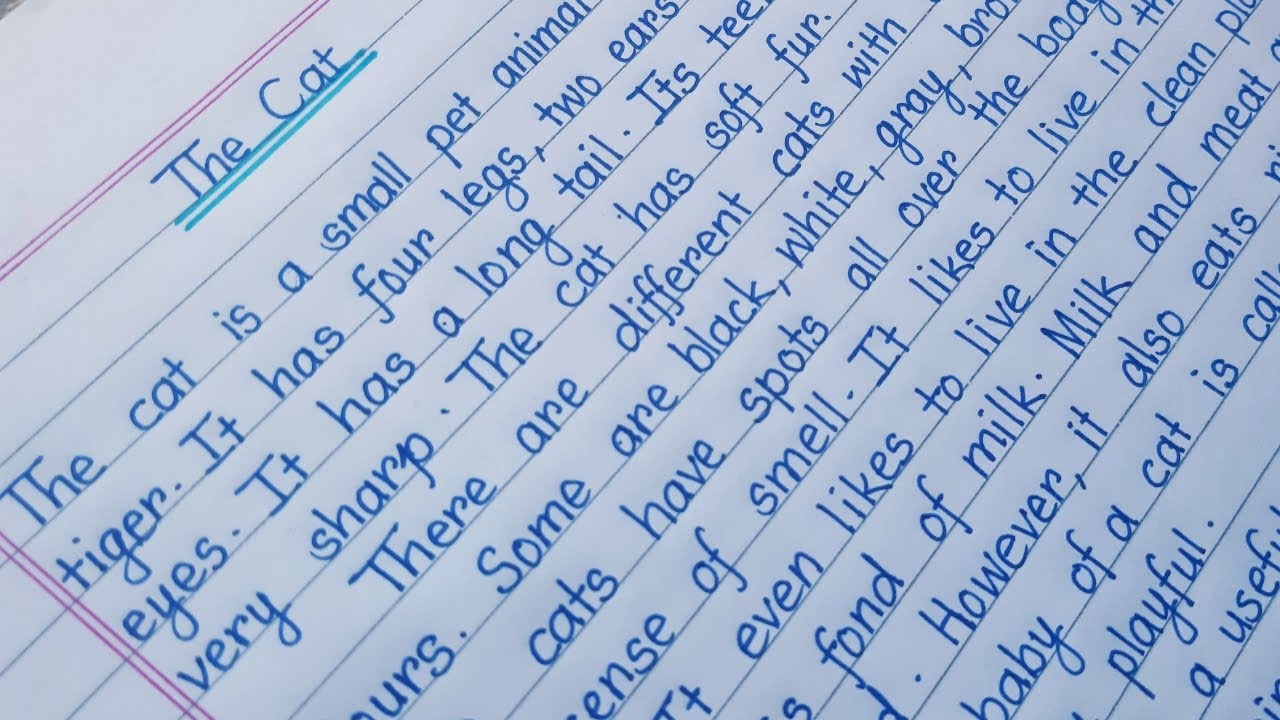 The Cat
The cat is a small pet animal
tiger. It has four legs, two ears
eyes. It has a long tail. Its
very sharp. The cat has soft fur.
There are different cats with
ours. Some are black, white, gray,
cats have spots all over the body
sense of smell. It likes to live in
It even likes to live in the clean
fond of milk. Milk and meat
. However, it also eats
baby of a cat is
playful.
a useful